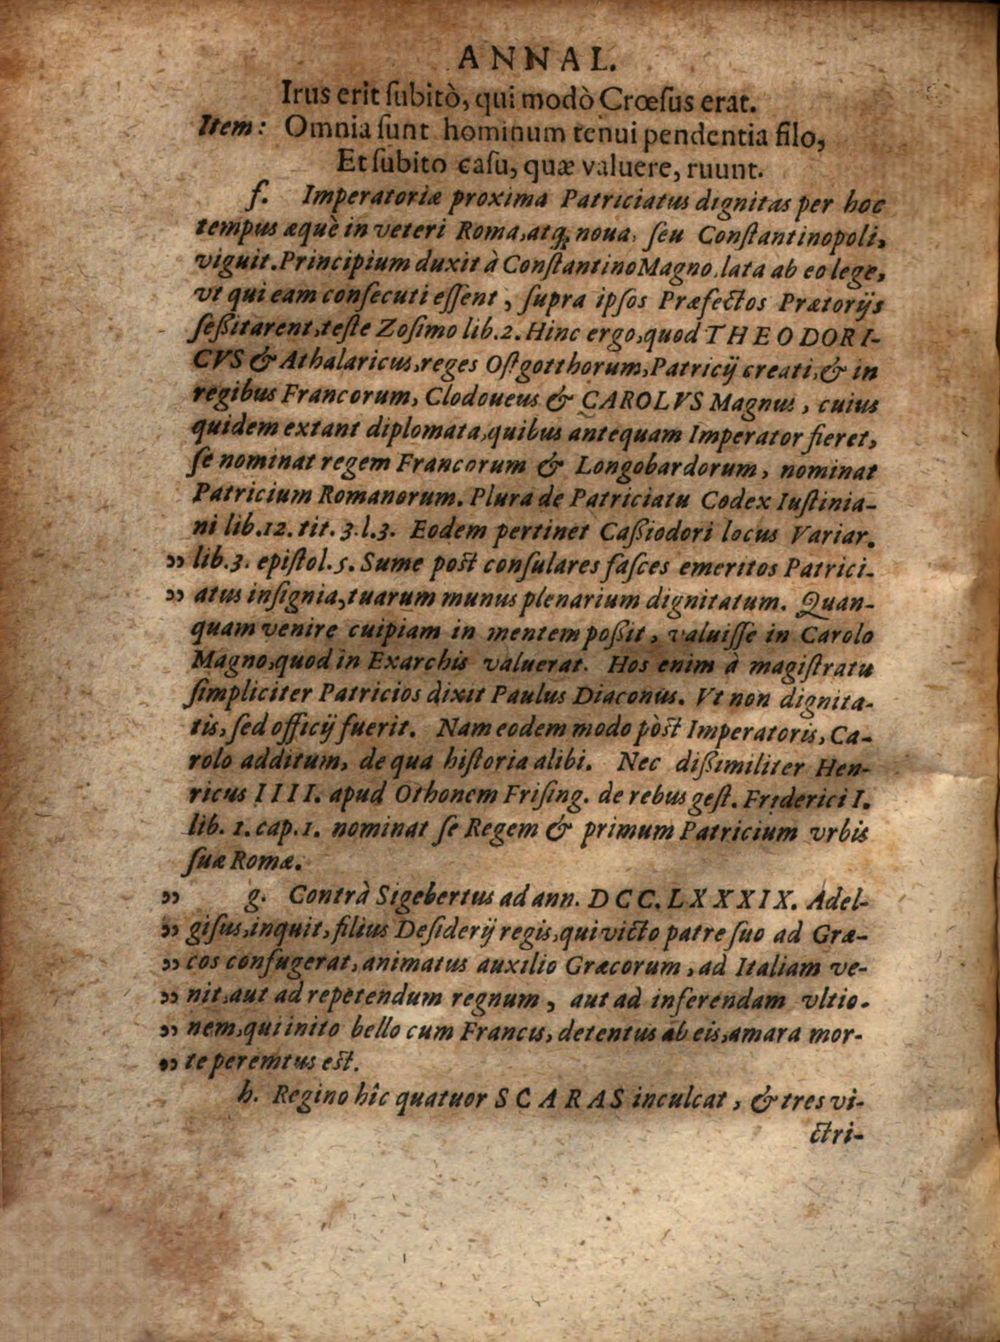 ANNAL.
Irus erit ſubitò, qui modò Crœſus erat.
Item: Omnia ſunt hominum tenui pendentia filo,
Et ſubito caſu, quæ valuere, ruunt.
f. Imperatoriæ proxima Patriciatus dignitas per hoc
tempus æquè in veteri Roma, atq; noua, ſeu Conſtantinopoli,
viguit. Principium duxit à Conſtantino Magno, lata ab eo lege,
vt qui eam conſecuti eſſent, ſupra ipſos Præfectos Prætorijs
ſeßitarent, teſte Zoſimo lib.2. Hinc ergo, quod THEODORI-
CVS & Athalaricus, reges Oſtgotthorum, Patricij creati, & in
regibus Francorum, Clodoueus & CAROLVS Magnus, cuius
quidem extant diplomata, quibus antequam Imperator fieret,
ſe nominat regem Francorum & Longobardorum, nominat
Patricium Romanorum. Plura de Patriciatu Codex Iuſtinia-
ni lib.12. tit. 3.l.3. Eodem pertinet Caßiodori locus Variar.
„ lib.3. epiſtol.5. Sume poſt conſulares faſces emeritos Patrici-
„ atus inſignia, tuarum munus plenarium dignitatum. Quan-
quam venire cuipiam in mentem poßit, valuiſſe in Carolo
Magno, quod in Exarchis valuerat. Hos enim à magiſtratu
ſimpliciter Patricios dixit Paulus Diaconus. Vt non dignita-
tis, ſed officij fuerit. Nam eodem modo pòſt Imperatoris, Ca-
rolo additum, de qua hiſtoria alibi. Nec dißimiliter Hen-
ricus IIII. apud Othonem Friſing. de rebus geſt. Friderici I.
lib. 1. cap.1. nominat ſe Regem & primum Patricium vrbis
ſuæ Romæ.
„ g. Contrà Sigebertus ad ann. DCC.LXXXIX. Adel-
„ giſus, inquit, filius Deſiderij regis, qui victo patre ſuo ad Græ-
„ cos confugerat, animatus auxilio Græcorum, ad Italiam ve-
„ nit, aut ad repetendum regnum, aut ad inferendam vltio-
„ nem, qui inito bello cum Francis, detentus ab eis, amara mor-
„ te peremtus eſt.
h. Regino hîc quatuor SCARAS inculcat, & tres vi-
ctri-